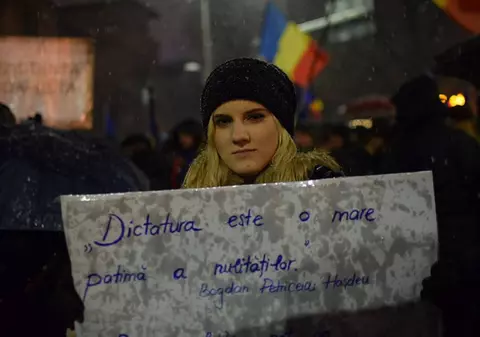 „Dictatura este o mare
patimă a nulităților."
Bogdan Petriceicu Hașdeu